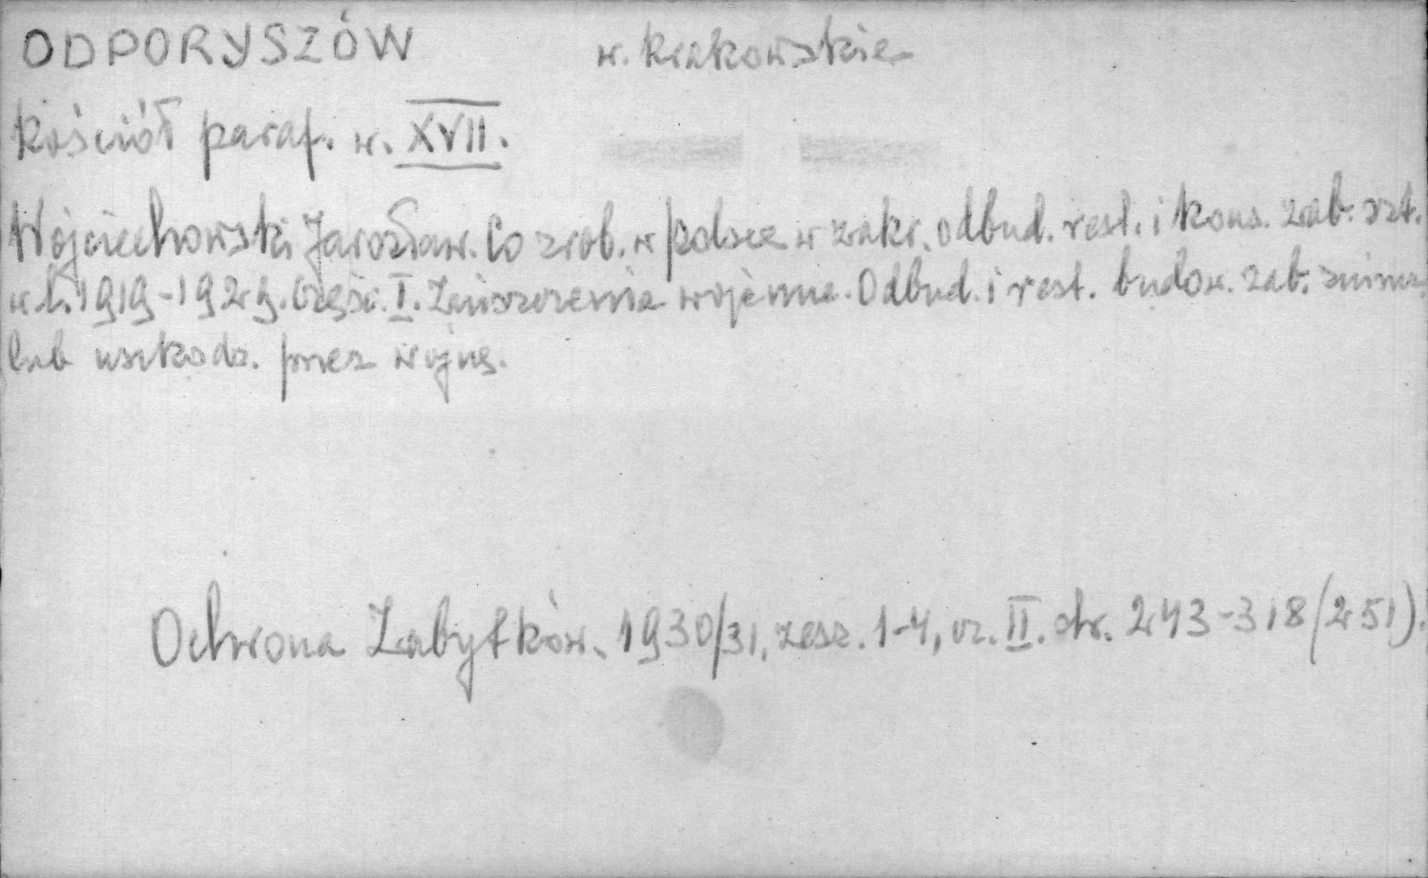 ODPORYSZÓW w. krakowskie
kościół paraf. w. XVII.
Wojciechowski Jarosław. Co zrob. w Polsce w zakr. odbud. rest. i kons. zab. szt.
w l. 1919-1929. Część. I. Zniszczenia wojenne. Odbud. i rest. budow. zab. zniszcz
lub uszkodz. przez wojnę.
Ochrona Zabytków. 1930/31, zesz. 1-4, cz. II. str. 243-318 (251).